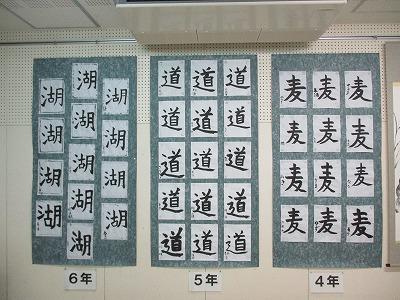 湖 湖 湖
湖 湖 湖
湖 湖 湖
湖 湖 湖
湖
6年
道 道 道
道 道 道
道 道 道
道 道 道
道 道 道
5年
麦 麦 麦
麦 麦 麦
麦 麦 麦
麦 麦 麦
4年